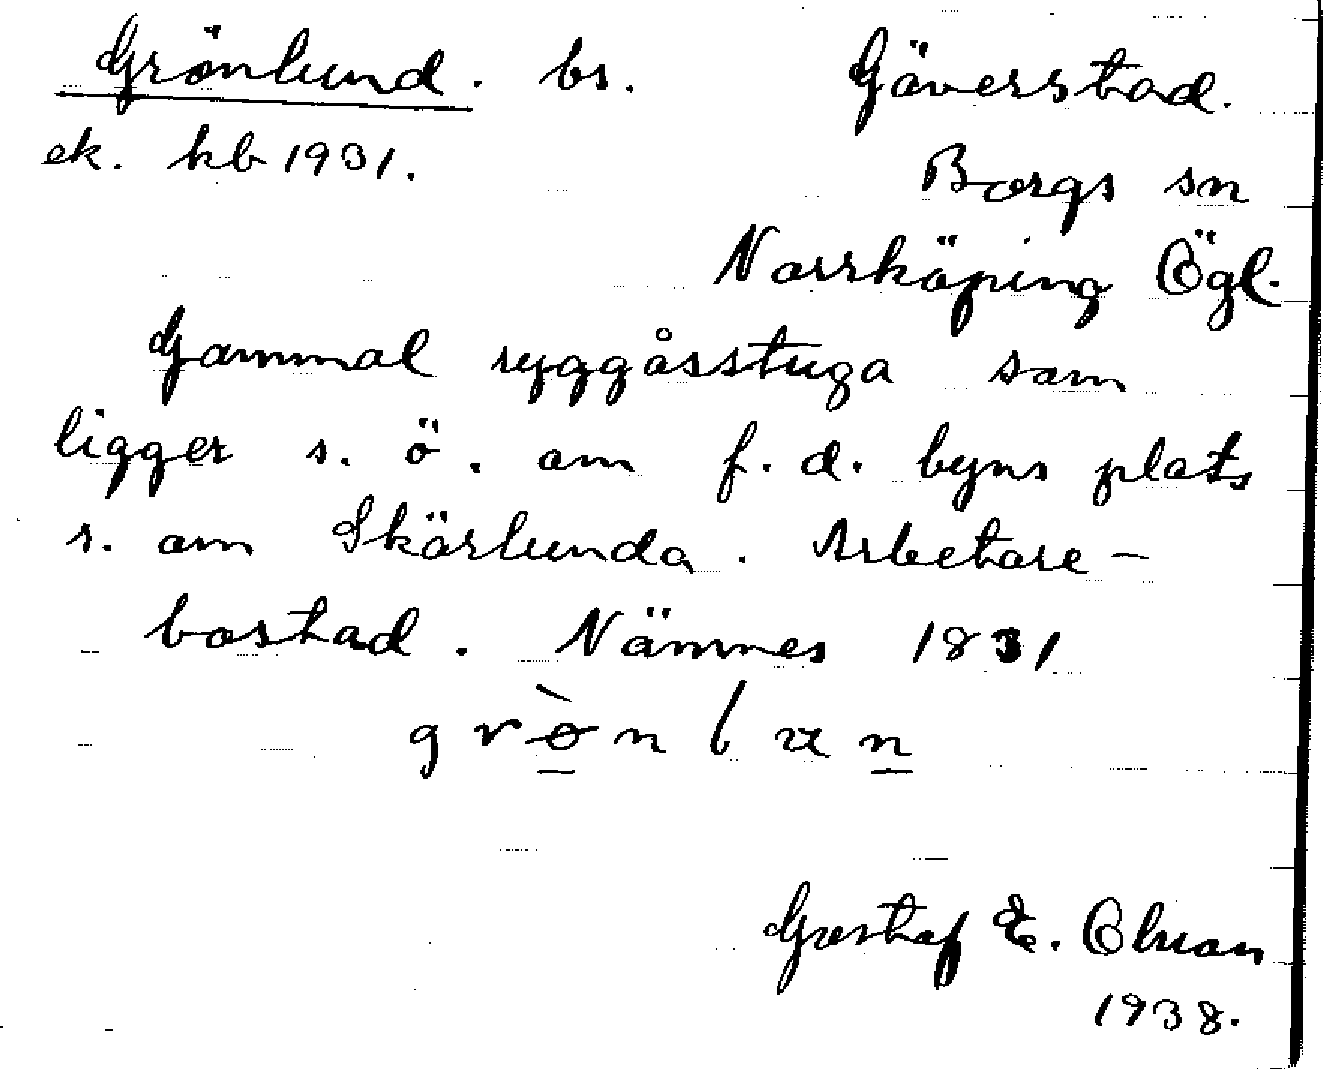 Grönlund. bs. Gäverstad.
ek. hb 1931. Borgs sn
Norrköping Ögl.
Gammal ryggåsstuga som
ligger s. ö. om f. d. byns plats
s. om Skärlunda. Arbetare-
bostad. Nämnes 1831
grø̀nlun
Gustaf E. Olsson
1938.